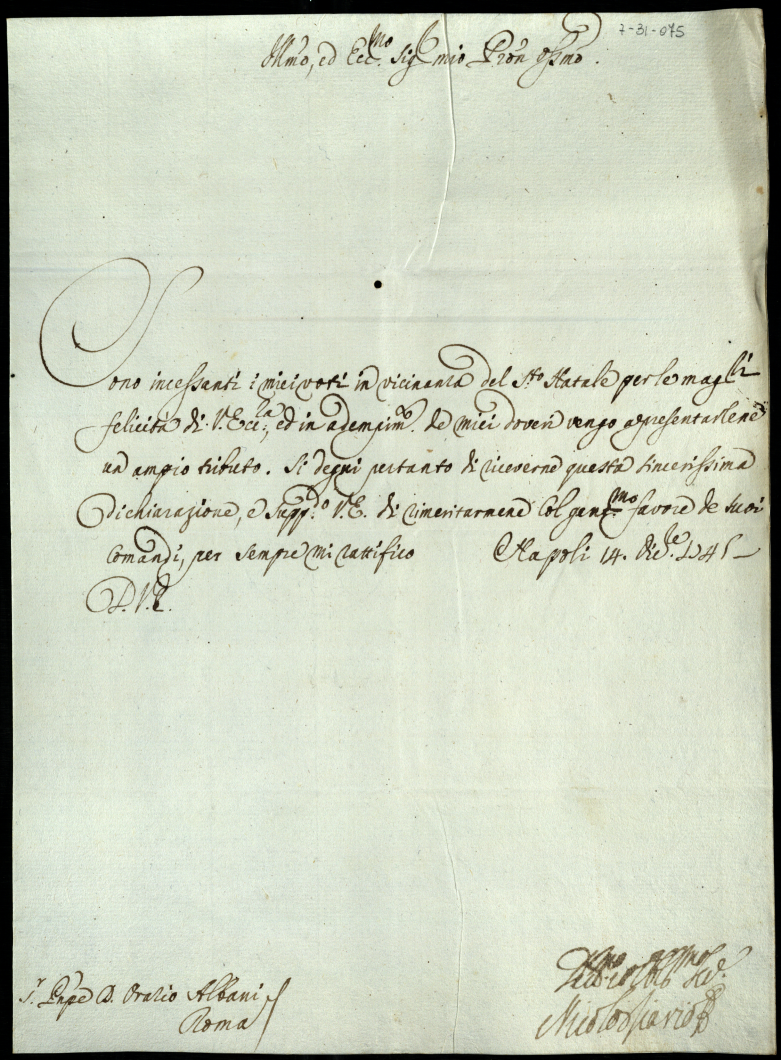 7-31-075
Illmo, ed Eccmo Sigr mio Pron Ossmo.
Sono incessanti i miei voti in vicinanza del Sto Natale per le maggri
felicità di V. Eccza, ed in adempimto de miei doveri vengo a presentarlene
un ampio tributo. Si degni pertanto di riceverne questa sincerissima
dichiarazione, e suppdo V.E. di rimeritarmene col genmo favore de suoi
comandi, per sempre mi rattifico Napoli 14. Dicre 1745
D.V.E.
Sr Pnpe D. Orazio Albani
Roma